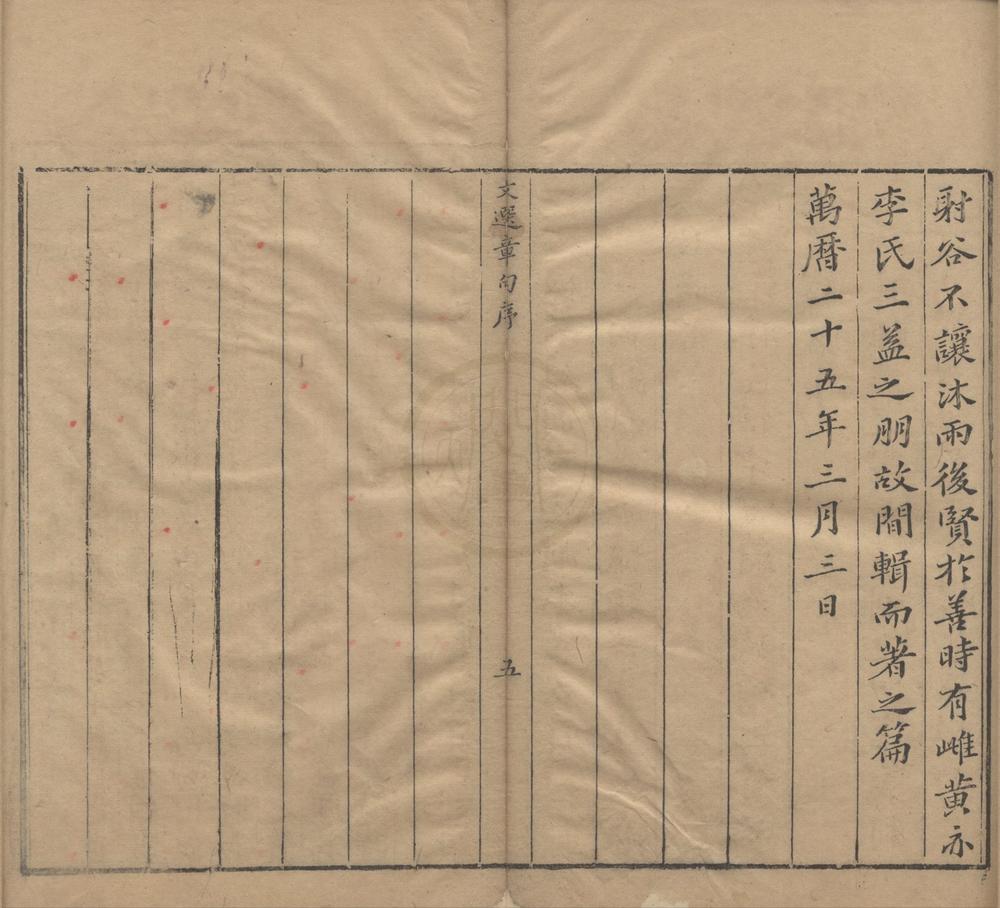 射谷不讓沐雨後賢於善時有雌黄亦
李氏三益之朋故間輯而著之篇
萬曆二十五年三月三日
文選章句序
五